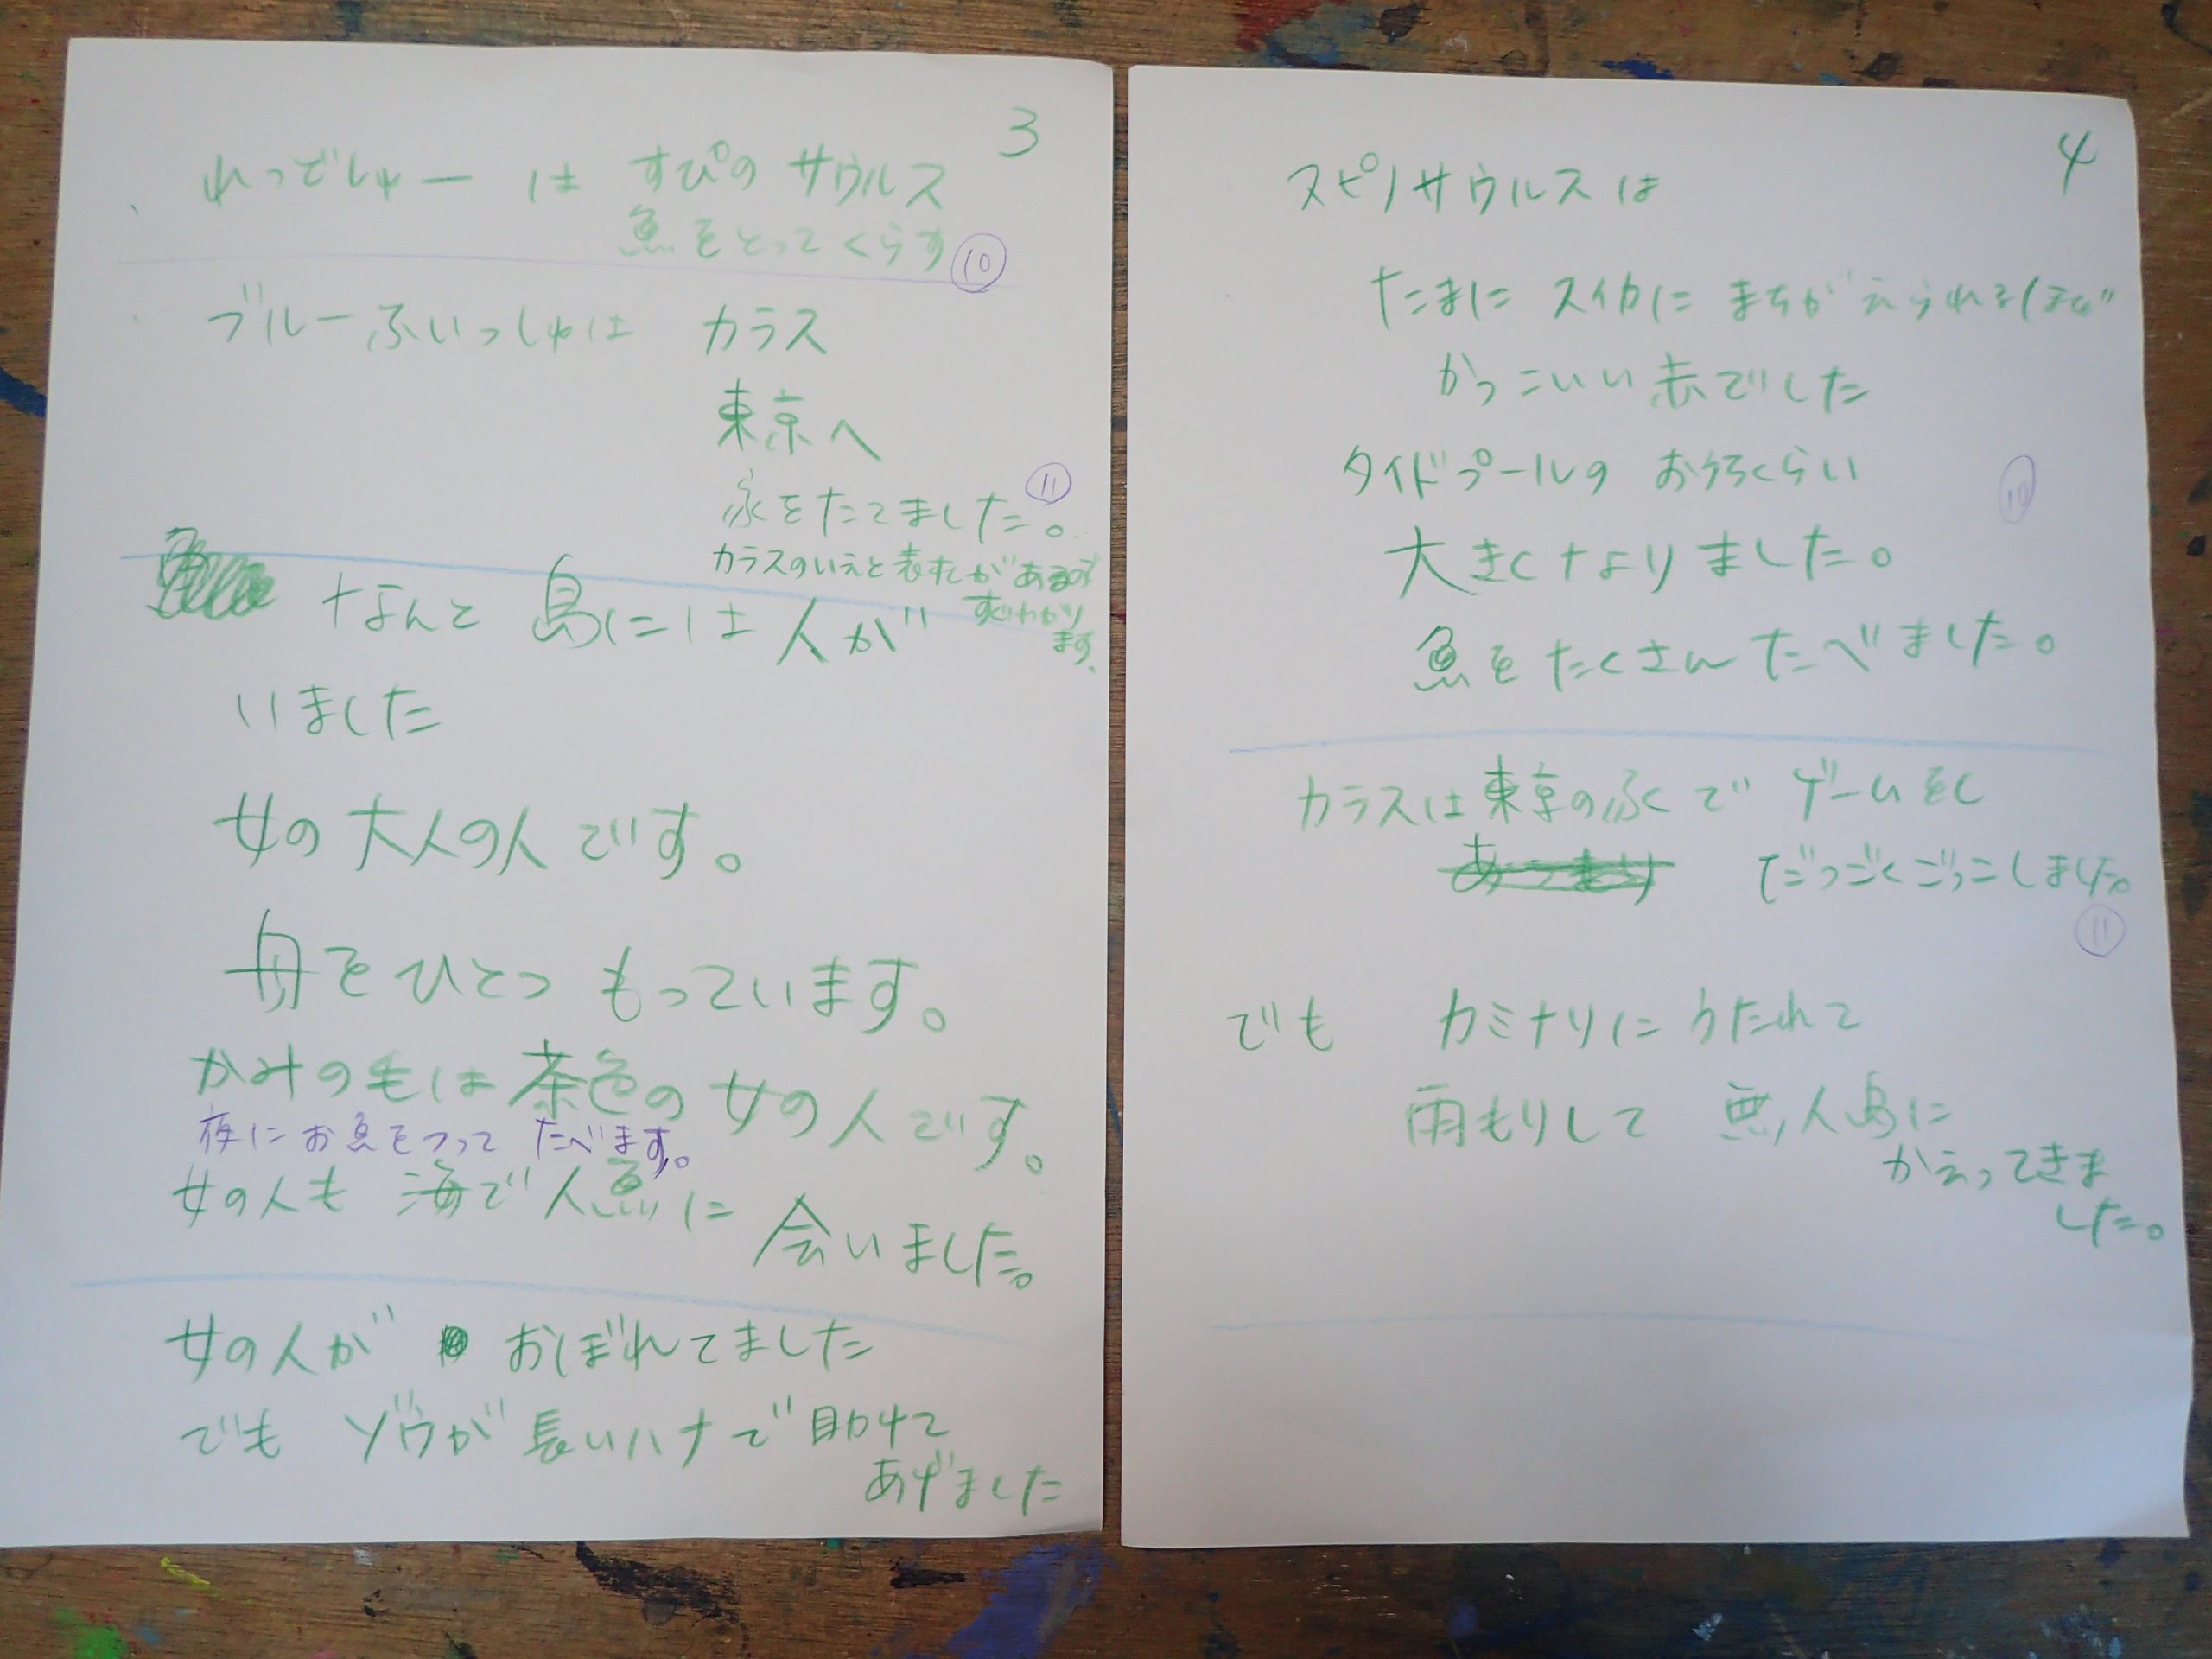 3
れっでしゅー は すぴの サウルス
魚をとってくらす ⑩
ブルーふいっしゅは カラス
東京へ
家をたてました。 ⑪
カラスのいえと表札があるので
すぐわかり
ます。
なんと 島には人が
いました
女の 大人の人 です。
舟を ひとつ もっています。
かみの毛は 茶色の 女の人です。
夜に お魚をつって たべます。
女の人も 海で 人魚に 会いました。
女の人が おぼれてました
でも ゾウが 長いハナで 助けて
あげました
4
スピノサウルスは
たまに スイカに まちがえられるほど
かっこいい 赤でした
タイドプールの おうちくらい
⑩
大きくなりました。
魚を たくさん たべました。
カラスは 東京の家で ゲームをし
だつごくごっこしました。
⑪
でも カミナリに うたれて
雨もりして 無人島に
かえってきま
した。